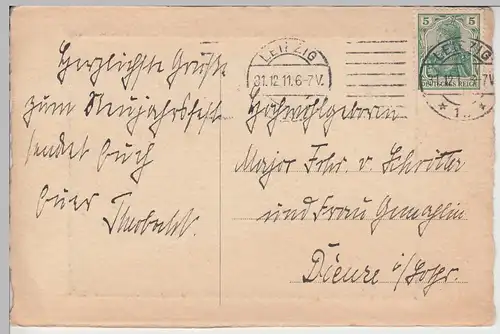 LEIPZIG
31.12.11.6-7V.
5 5
DEUTSCHES REICH
LEIPZIG
Herzlichste Grüße
zum Neujahrsfeste
sendet Euch
Euer
Hochwohlgeboren
Major Frhr. v.
und Frau Gemahlin
Dieuze i/Lothr.